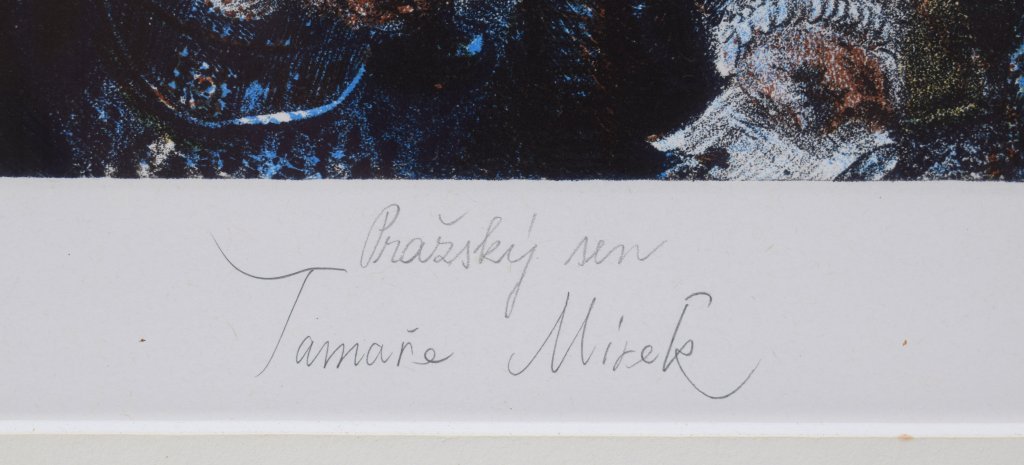 Pražský sen
Tamaře Mirek